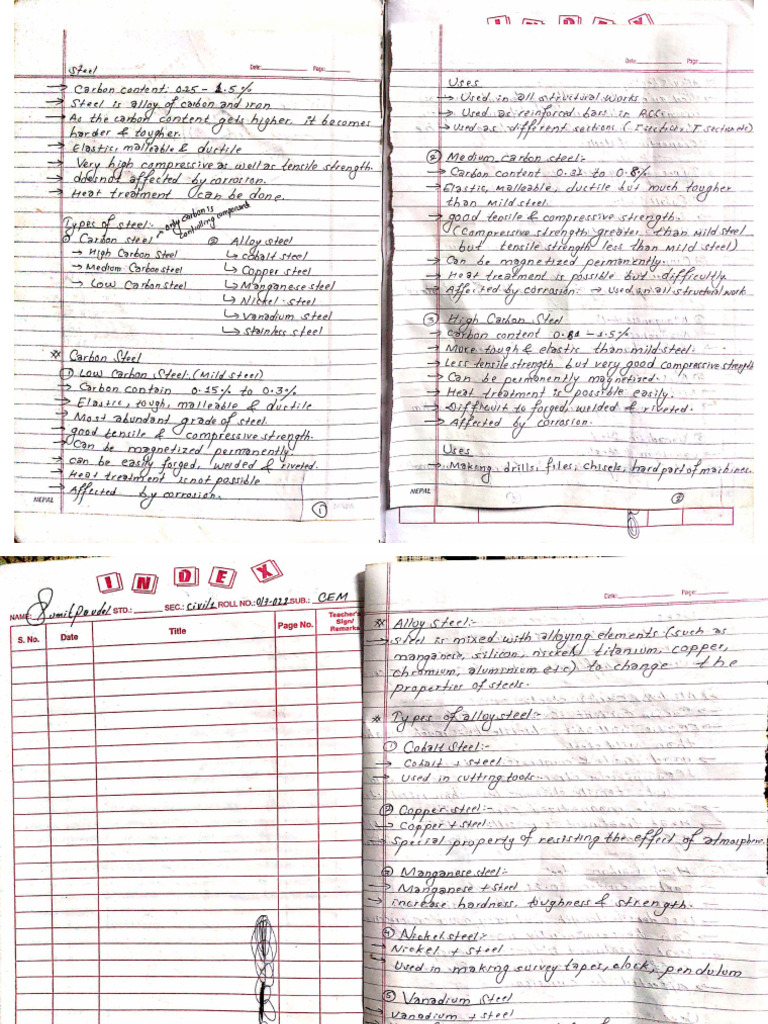 Date: Page:
Steel
→ Carbon content: 0.25 - 1.5%
→ Steel is alloy of carbon and iron
→ As the carbon content gets higher, it becomes
harder & tougher.
→ Elastic, malleable & ductile
→ Very high compressive as well as tensile strength.
→ does not affected by corrosion.
→ Heat treatment can be done.
Types of steel: → only carbon is
controlling components
① Carbon steel
→ High Carbon Steel
→ Medium Carbon steel
→ Low Carbon steel
② Alloy steel
↳ cobalt steel
↳ Copper steel
↳ Manganese steel
↳ Nickel steel
↳ Vanadium steel
↳ stainless steel
* Carbon Steel
① Low Carbon Steel: (Mild steel)
→ Carbon contain 0.15% to 0.3%
→ Elastic, tough, malleable & ductile
→ Most abundant grade of steel.
→ good tensile & compressive strength.
→ Can be magnetized permanently.
→ can be easily forged, welded & riveted.
→ Heat treatment is not possible
→ Affected by corrosion.
NEPAL
①
INDEX
Date: Page:
Uses
→ Used in all structural works
→ Used as reinforced bars in RCC
→ Used as different sections (I section, T section etc)
② Medium carbon steel:-
→ Carbon content 0.31 to 0.8%
→ Elastic, Malleable, ductile but much tougher
than Mild steel.
→ good tensile & compressive strength.
(Compressive strength greater than Mild steel
but tensile strength less than Mild steel)
→ Can be magnetized permanently.
→ Heat treatment is possible but difficultly
→ Affected by corrosion. → Used in all structural work
③ High Carbon Steel
→ Carbon content 0.81 - 1.5%
→ More tough & elastic than mild steel.
→ Less tensile strength but very good compressive strength
→ Can be permanently magnetised.
→ Heat treatment is possible easily.
→ Difficult to forged, welded & riveted.
→ Affected by corrosion.
Uses
→ Making drills, files, chisels, hard part of machines.
NEPAL
②
INDEX
NAME: Sumit Paudel STD.: SEC.: Civil 1 ROLL NO.: 013-022 SUB.: CEM
S. No. Date Title Page No. Teacher's Sign/ Remarks
Date: Page:
** Alloy Steel:-
→ Steel is mixed with alloying elements (such as
manganese, silicon, nickel, titanium, copper,
chromium, aluminium etc) to change the
properties of steels.
* Types of alloy steel:-
① Cobalt Steel:-
→ Cobalt + steel
→ Used in cutting tools.
② Copper steel:-
→ Copper + steel
→ Special property of resisting the effect of atmosphere.
③ Manganese steel:-
→ Manganese + steel
→ increase hardness, toughness & strength.
④ Nickel steel:-
→ Nickel + steel
→ Used in making survey tapes, clock, pendulum
⑤ Vanadium Steel
→ Vanadium + steel